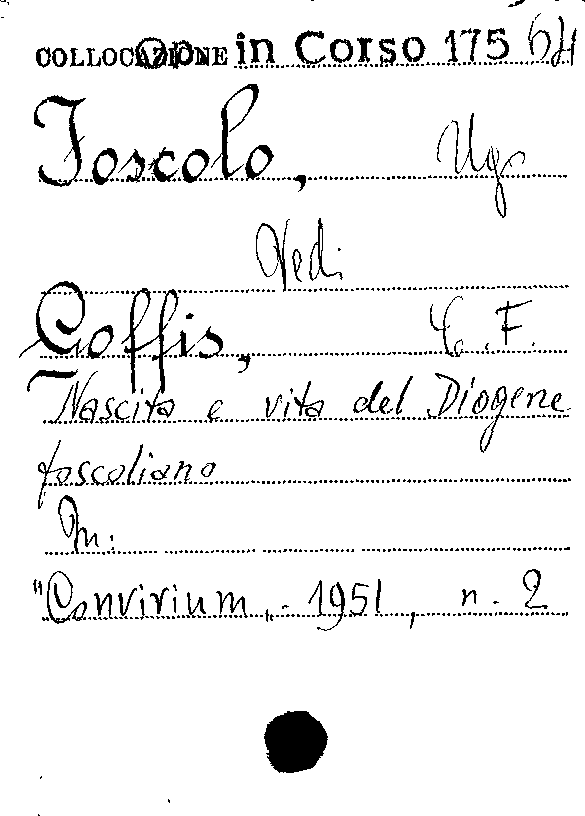 COLLOCAZIONE in Corso 175 64
Foscolo, Ugo
Vedi
Goffis, C. F.
Nascita e vita del Diogene
foscoliano
In:
"Convivium". 1951, n. 2